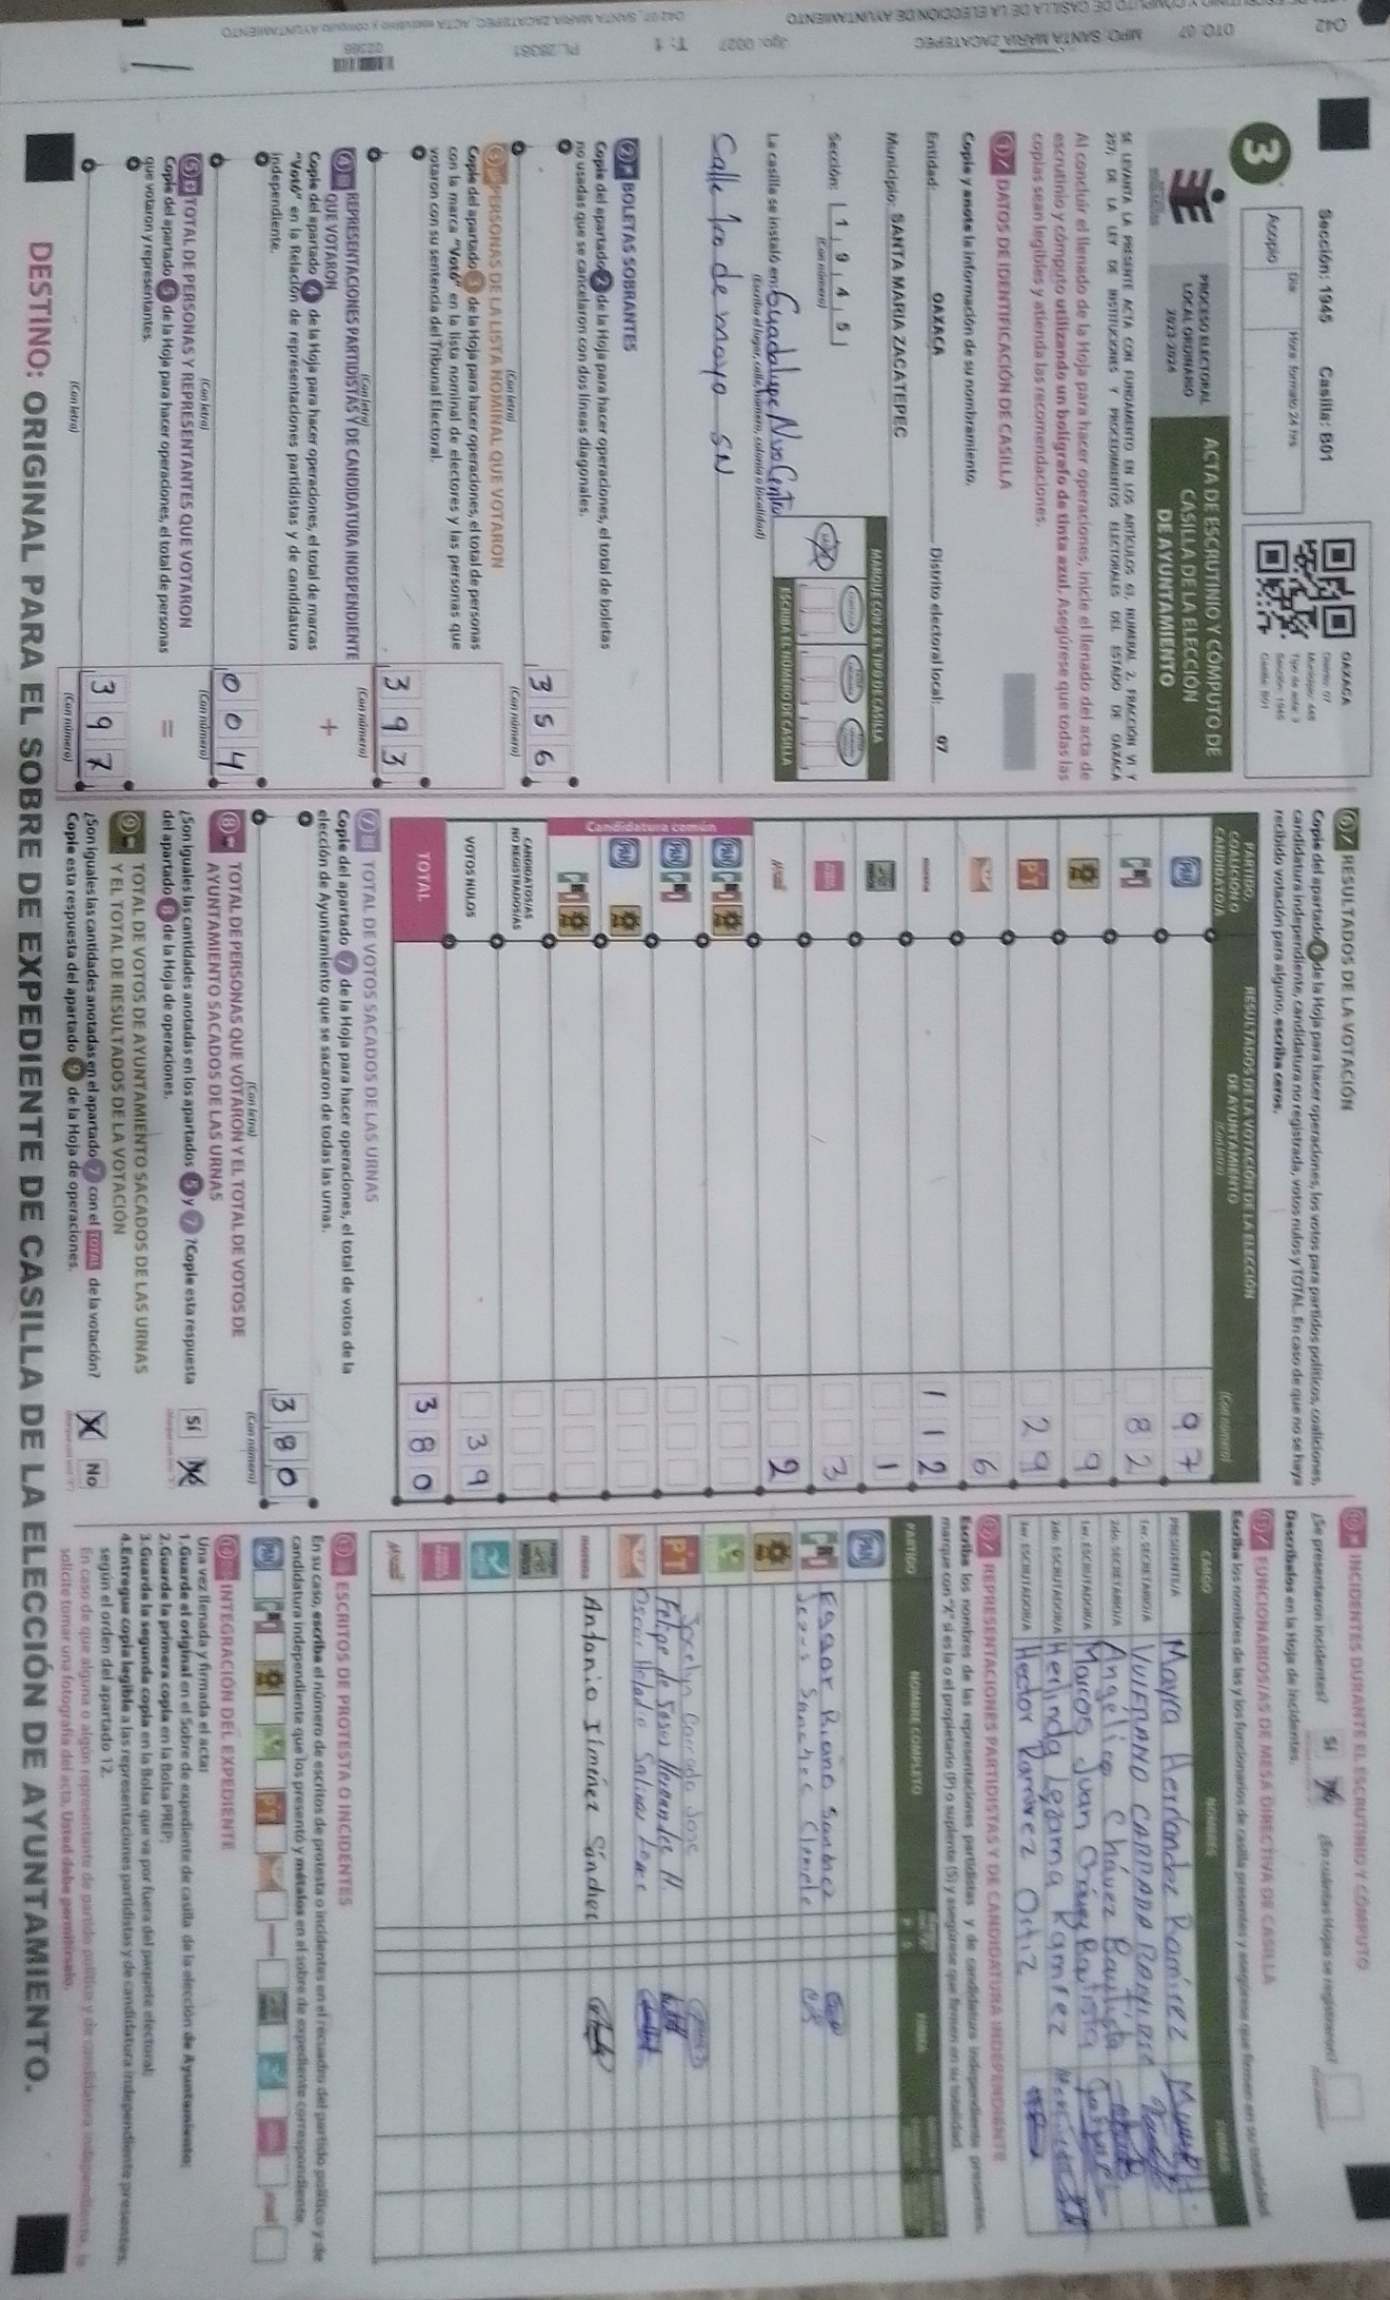 Sección: 1945 Casilla: B01
OAXACA
Acopio
Día
Hora formato 24 hrs
3
PROCESO ELECTORAL
LOCAL ORDINARIO
2023-2024
ACTA DE ESCRUTINIO Y CÓMPUTO DE
CASILLA DE LA ELECCIÓN
DE AYUNTAMIENTO
SE LEVANTA LA PRESENTE ACTA CON FUNDAMENTO EN LOS ARTÍCULOS 61, NUMERAL 2, FRACCIÓN VI Y
257, DE LA LEY DE INSTITUCIONES Y PROCEDIMIENTOS ELECTORALES DEL ESTADO DE OAXACA
Al concluir el llenado de la Hoja para hacer operaciones, inicie el llenado del acta de
escrutinio y cómputo utilizando un bolígrafo de tinta azul. Asegúrese que todas las
copias sean legibles y atienda las recomendaciones.
1 DATOS DE IDENTIFICACIÓN DE CASILLA
Copie y anote la información de su nombramiento.
Entidad: OAXACA Distrito electoral local: 07
Municipio: SANTA MARIA ZACATEPEC
Sección: 1 9 4 5
(Con número)
MARQUE CON X EL TIPO DE CASILLA
ESCRIBA EL NÚMERO DE CASILLA
La casilla se instaló en: Guadalupe Nvo Centro
(Escriba el lugar, calle, número, colonia o localidad)
Calle 1ro de mayo SN
2 BOLETAS SOBRANTES
Copie del apartado 2 de la Hoja para hacer operaciones, el total de boletas
no usadas que se cancelaron con dos líneas diagonales.
3 5 6
(Con letra) (Con número)
3 PERSONAS DE LA LISTA NOMINAL QUE VOTARON
Copie del apartado 3 de la Hoja para hacer operaciones, el total de personas
con la marca "Votó" en la lista nominal de electores y las personas que
votaron con su sentencia del Tribunal Electoral.
3 9 3
(Con letra) (Con número)
4 REPRESENTACIONES PARTIDISTAS Y DE CANDIDATURA INDEPENDIENTE
QUE VOTARON
+
Copie del apartado 4 de la Hoja para hacer operaciones, el total de marcas
"Votó" en la Relación de representaciones partidistas y de candidatura
independiente.
0 0 4
(Con letra) (Con número)
5 TOTAL DE PERSONAS Y REPRESENTANTES QUE VOTARON
=
Copie del apartado 5 de la Hoja para hacer operaciones, el total de personas
que votaron y representantes.
3 9 7
(Con letra) (Con número)
6 RESULTADOS DE LA VOTACIÓN
Copie del apartado 6 de la Hoja para hacer operaciones, los votos para partidos políticos, coaliciones,
candidatura independiente, candidatura no registrada, votos nulos y TOTAL. En caso de que no se haya
recibido votación para alguno, escriba ceros.
PARTIDO,
COALICIÓN O
CANDIDATO/A
RESULTADOS DE LA VOTACIÓN DE LA ELECCIÓN
DE AYUNTAMIENTO
(Con letra)
(Con número)
PAN 9 7
PRI 8 2
9
PT 2 9
6
morena 1 1 2
1
3
2
Candidatura común
PAN PRI
PAN PRI
PAN
PRI
CANDIDATOS/AS
NO REGISTRADOS/AS
VOTOS NULOS 3 9
TOTAL 3 8 0
7 TOTAL DE VOTOS SACADOS DE LAS URNAS
Copie del apartado 7 de la Hoja para hacer operaciones, el total de votos de la
elección de Ayuntamiento que se sacaron de todas las urnas.
3 8 0
(Con letra) (Con número)
8 TOTAL DE PERSONAS QUE VOTARON Y EL TOTAL DE VOTOS DE
AYUNTAMIENTO SACADOS DE LAS URNAS
¿Son iguales las cantidades anotadas en los apartados 5 y 7? Copie esta respuesta
del apartado 8 de la Hoja de operaciones.
Sí
9 TOTAL DE VOTOS DE AYUNTAMIENTO SACADOS DE LAS URNAS
Y EL TOTAL DE RESULTADOS DE LA VOTACIÓN
¿Son iguales las cantidades anotadas en el apartado 7 con el TOTAL de la votación?
Copie esta respuesta del apartado 9 de la Hoja de operaciones.
X No
10 INCIDENTES DURANTE EL ESCRUTINIO Y CÓMPUTO
¿Se presentaron incidentes? Sí ¿En cuántas Hojas se registraron?
Descríbalos en la Hoja de incidentes.
11 FUNCIONARIOS/AS DE MESA DIRECTIVA DE CASILLA
Escriba los nombres de las y los funcionarios de casilla presentes y asegúrese que firmen en su totalidad.
CARGO NOMBRES FIRMAS
PRESIDENTE/A Mayra Hernandez Ramirez
1er. SECRETARIO/A
2do. SECRETARIO/A Angélica Chávez Bautista
1er. ESCRUTADOR/A Marcos Juan Chávez Bautista
2do. ESCRUTADOR/A Herlinda Ledama Ramirez
3er. ESCRUTADOR/A Hector Ramirez Ortiz
12 REPRESENTACIONES PARTIDISTAS Y DE CANDIDATURA INDEPENDIENTE
Escriba los nombres de las representaciones partidistas y de candidatura independiente presentes,
marque con "X" si es la o el propietario (P) o suplente (S) y asegúrese que firmen en su totalidad.
PARTIDO NOMBRE COMPLETO FIRMA
PAN
PRI
PT Felipe de Jesus Hernandez H.
morena Antonio Jiménez Sánchez
13 ESCRITOS DE PROTESTA O INCIDENTES
En su caso, escriba el número de escritos de protesta o incidentes en el recuadro del partido político y de
candidatura independiente que los presentó y métalos en el sobre de expediente correspondiente.
INTEGRACIÓN DEL EXPEDIENTE
Una vez llenada y firmada el acta:
1.Guarde el original en el Sobre de expediente de casilla de la elección de Ayuntamiento;
2.Guarde la primera copia en la Bolsa PREP;
3.Guarde la segunda copia en la Bolsa que va por fuera del paquete electoral;
4.Entregue copia legible a las representaciones partidistas y de candidatura independiente presentes,
según el orden del apartado 12.
En caso de que alguna o algún representante de partido político y de candidatura independiente, le
solicite tomar una fotografía del acta, Usted debe permitírselo.
DESTINO: ORIGINAL PARA EL SOBRE DE EXPEDIENTE DE CASILLA DE LA ELECCIÓN DE AYUNTAMIENTO.
042 DTO. 07 MPO. SANTA MARIA ZACATEPEC